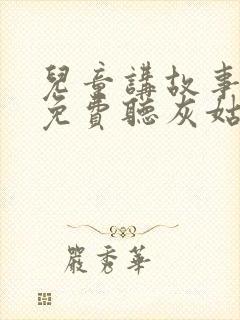 兒童講故事
免費聽灰姑
嚴秀華